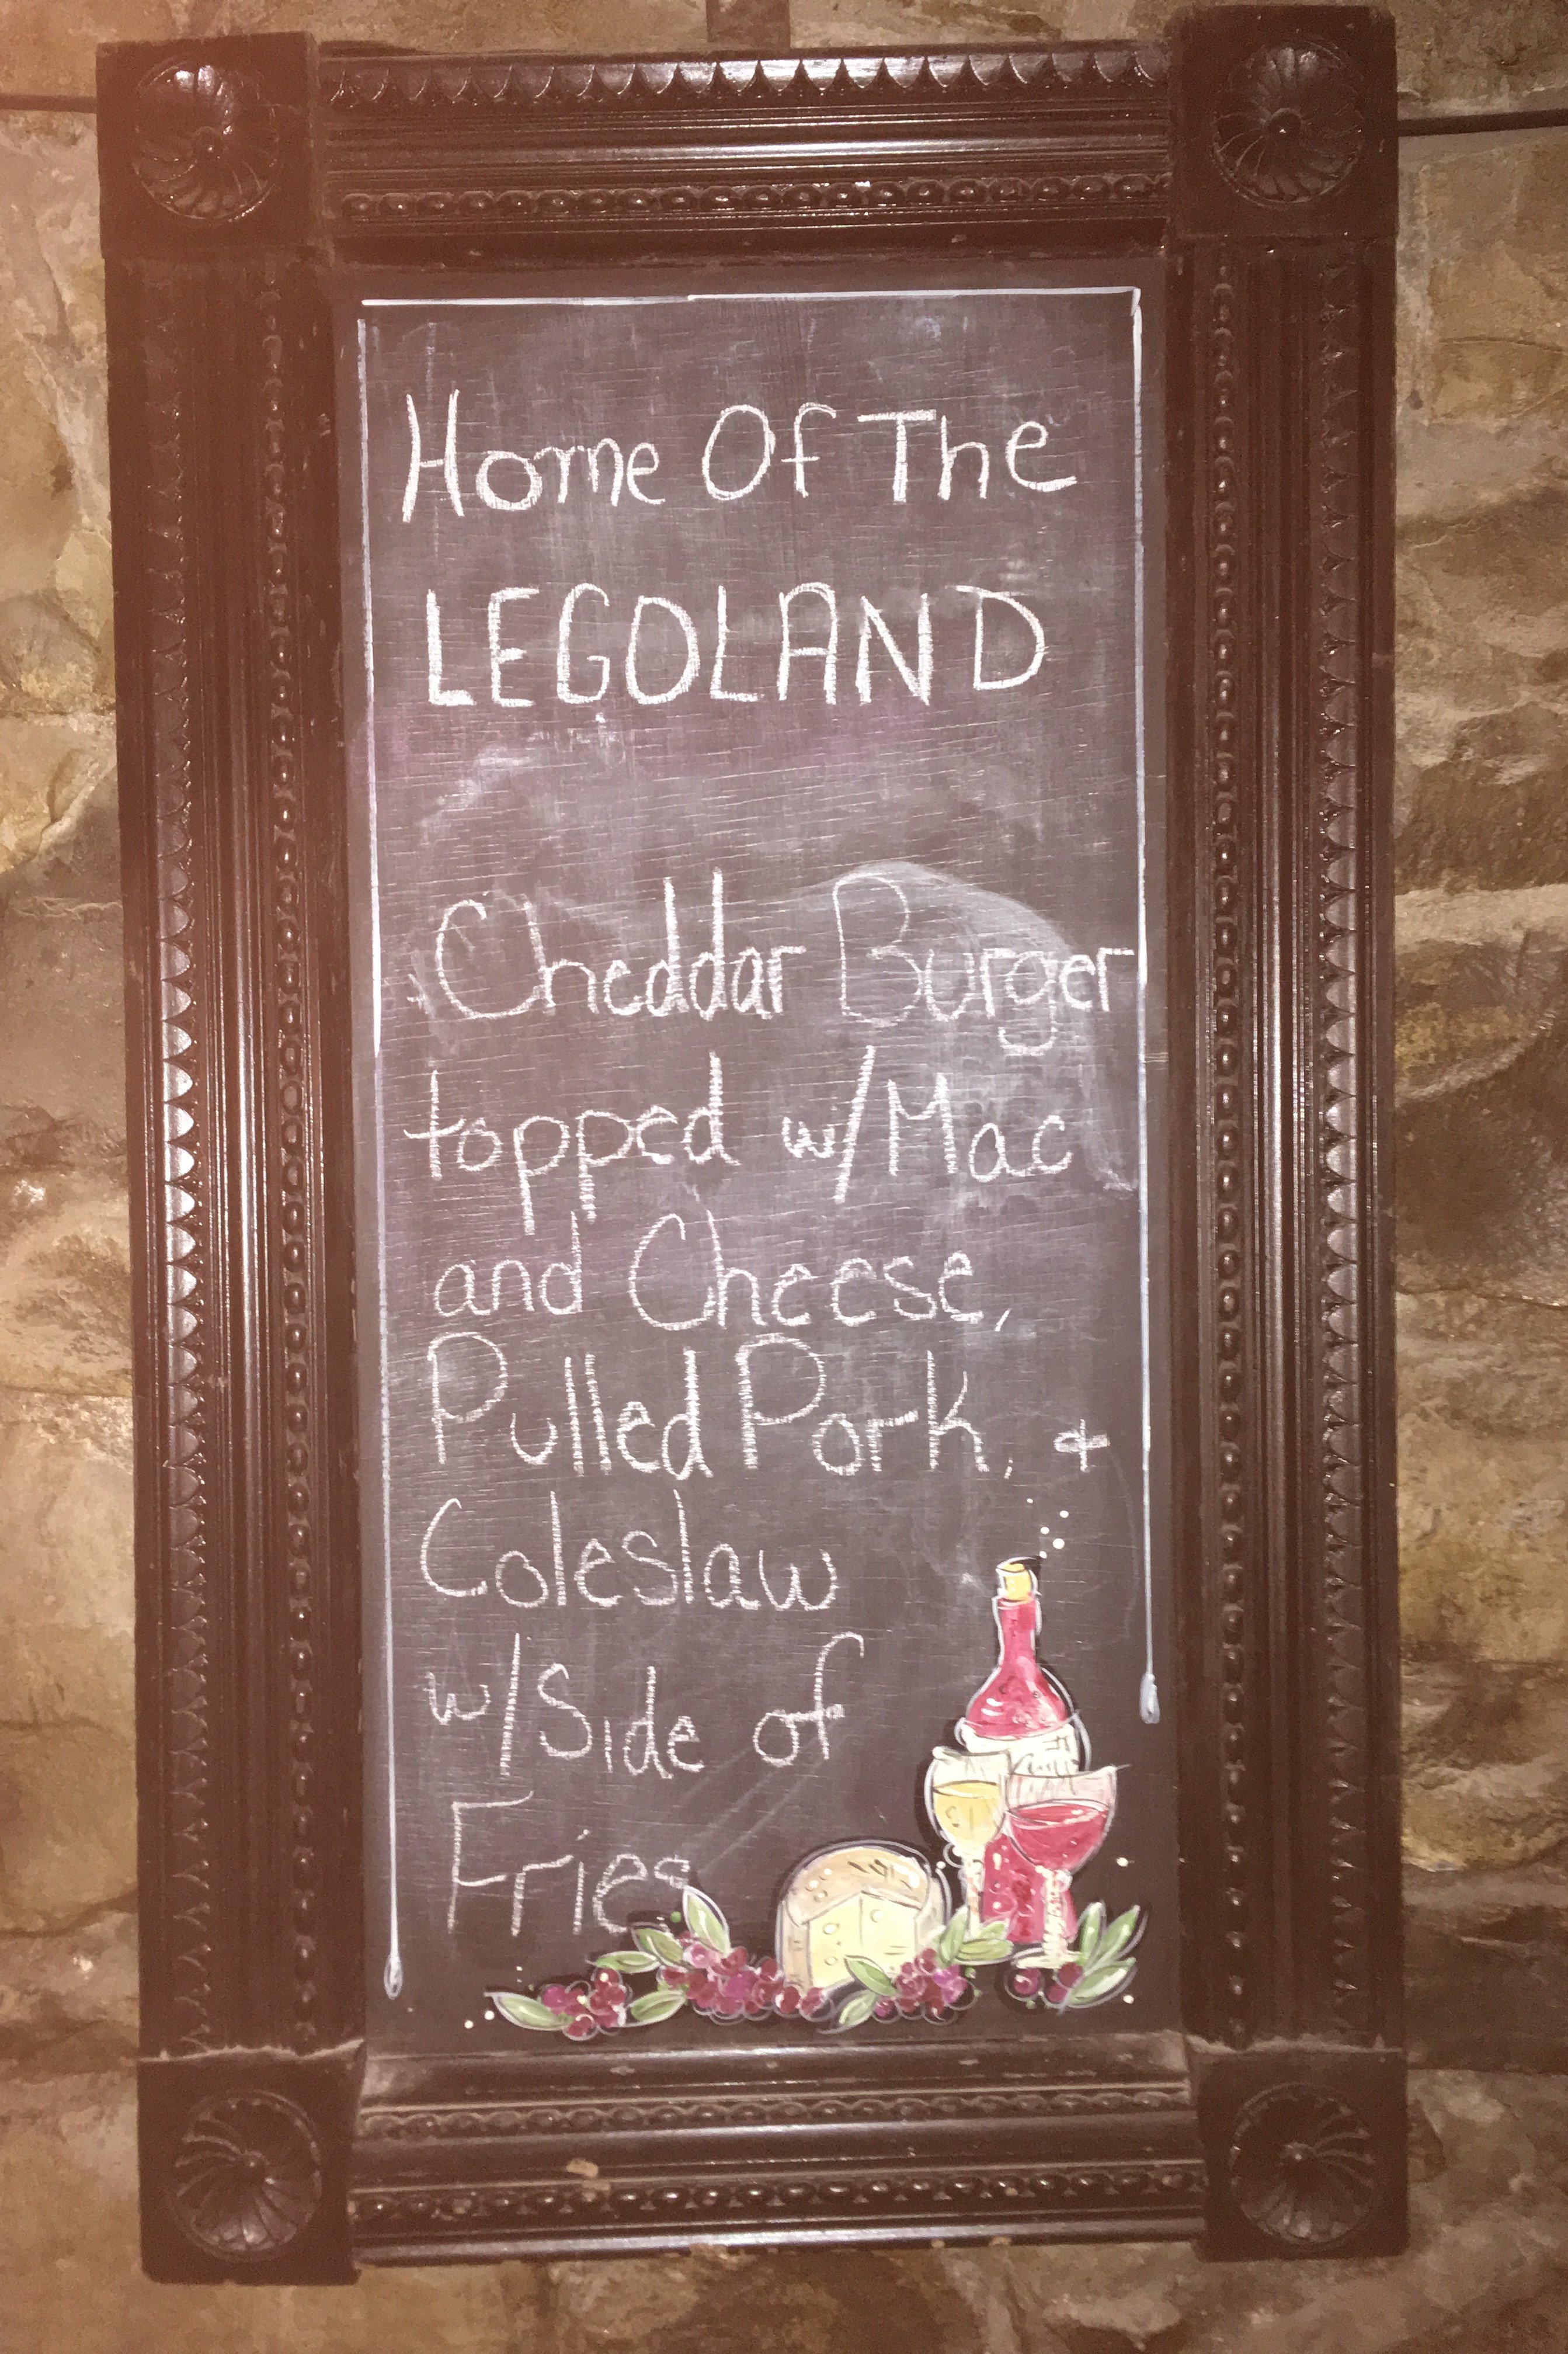 Home Of The
LEGOLAND
Cheddar Burger
topped w/Mac
and Cheese,
Pulled Pork, +
Coleslaw
w/Side of
Fries